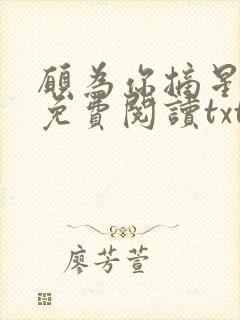 願為你摘星
免費閱讀txt
廖芳萱